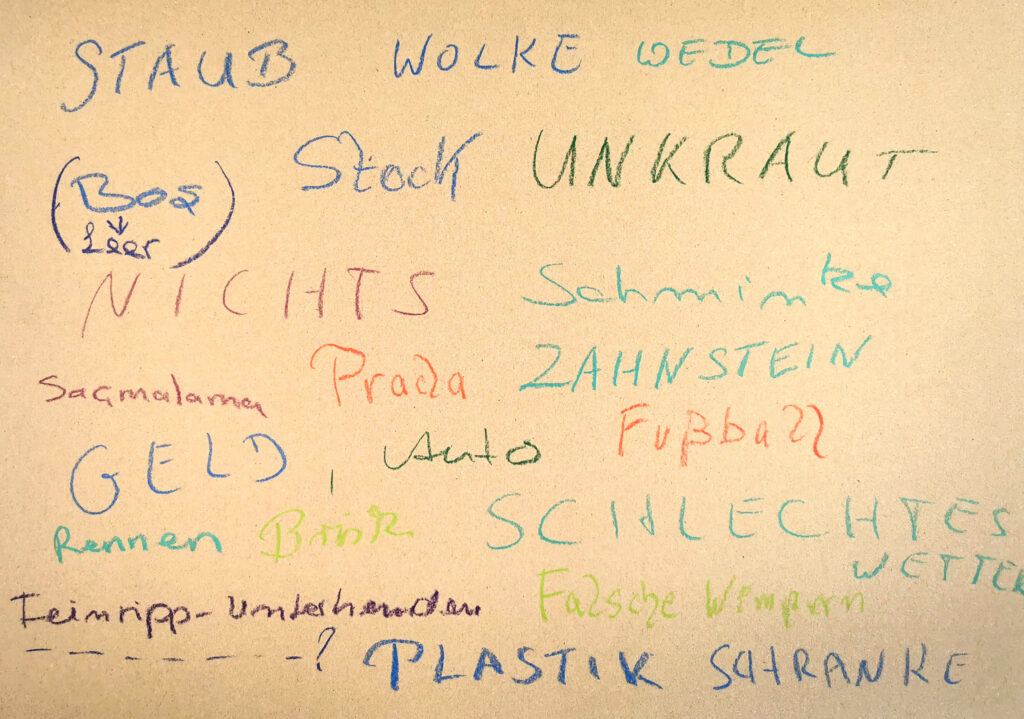 STAUB WOLKE WEDEL
Stock UNKRAUT
(Bos
Leer)
NICHTS Schminke
Prada ZAHNSTEIN
Sagmalama
GELD, Auto Fußball
Rennen SCHLECHTES
WETTER
Feinripp-Unterhemden Falsche Wimpern
-------? PLASTIK SCHRANKE